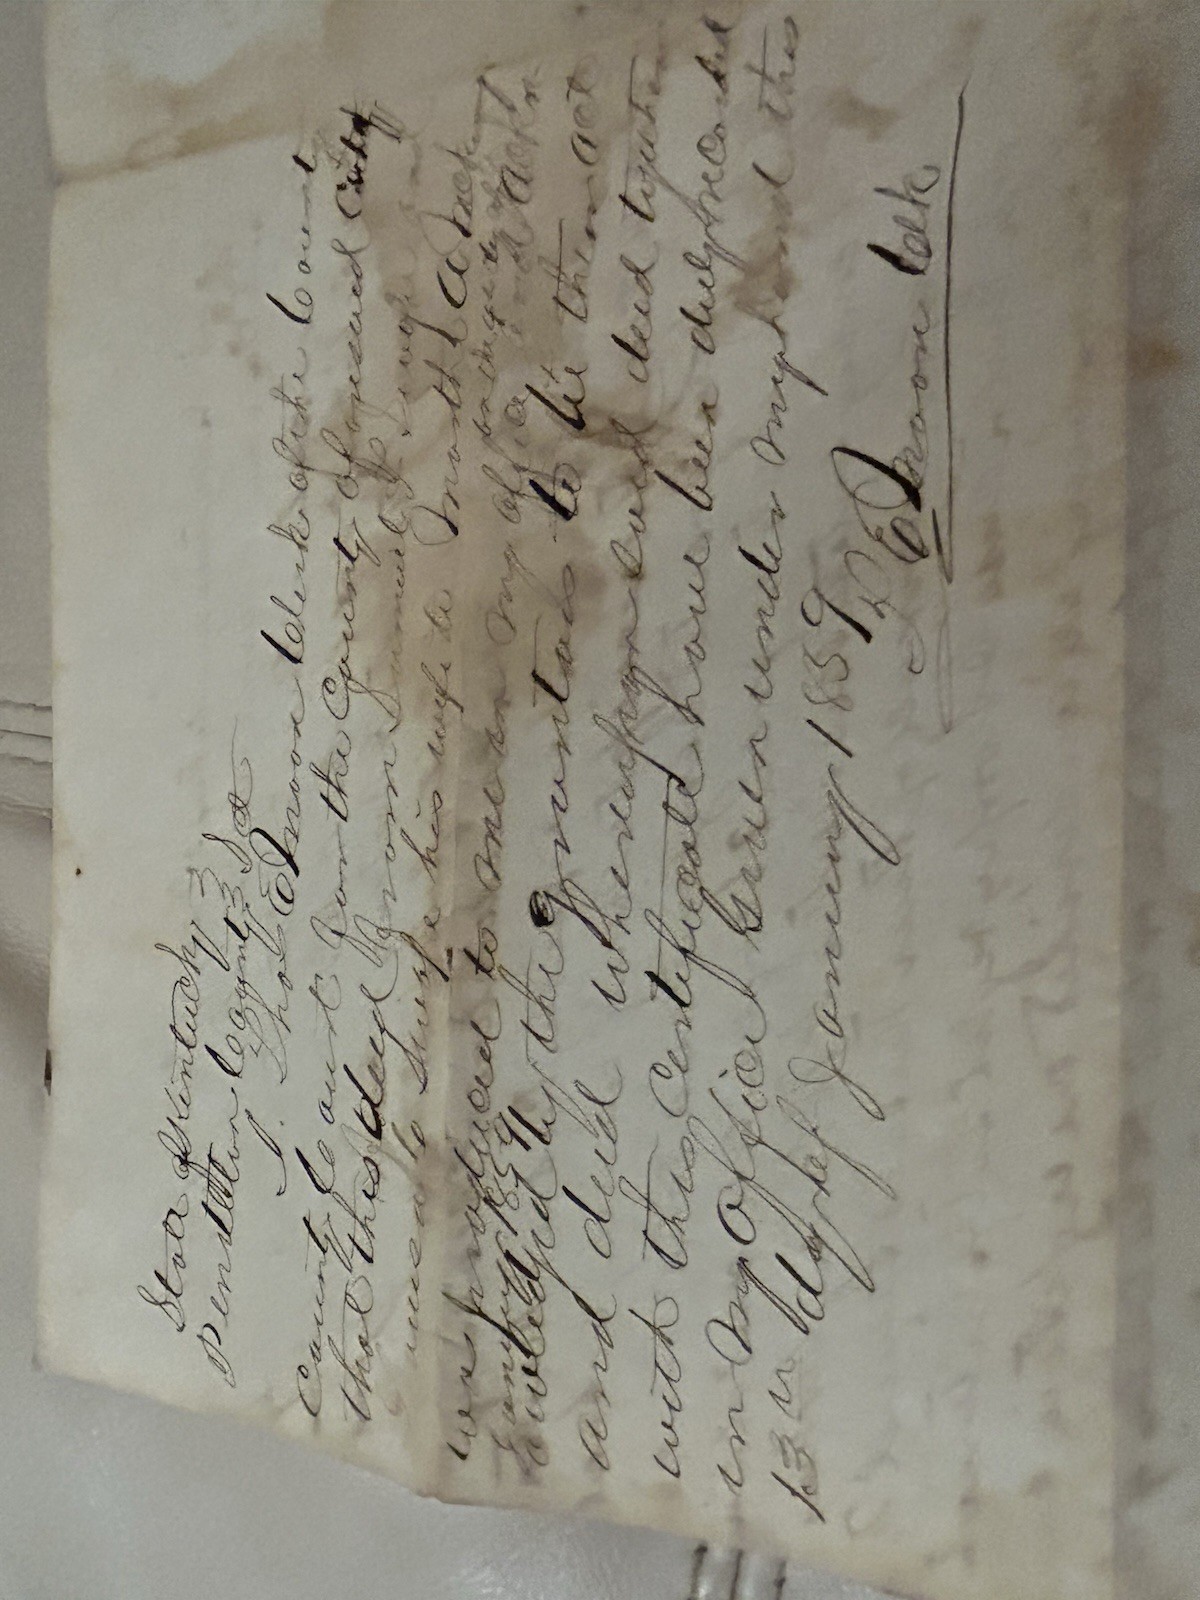 State of Kentucky } 
Pendleton County } Sct
I. Thos E Moore Clerk of the Court
County Court for the County aforesaid certify
that this deed from Samuel J
to Surge his wife to
was produced to me in my office
1859 and ackn
owledged by the grantors to be their act
and deed whereupon said deed together
with this certificate have been duly recorded
in my office Given under my hand this
13 day of January 1859
T E Moore Clk